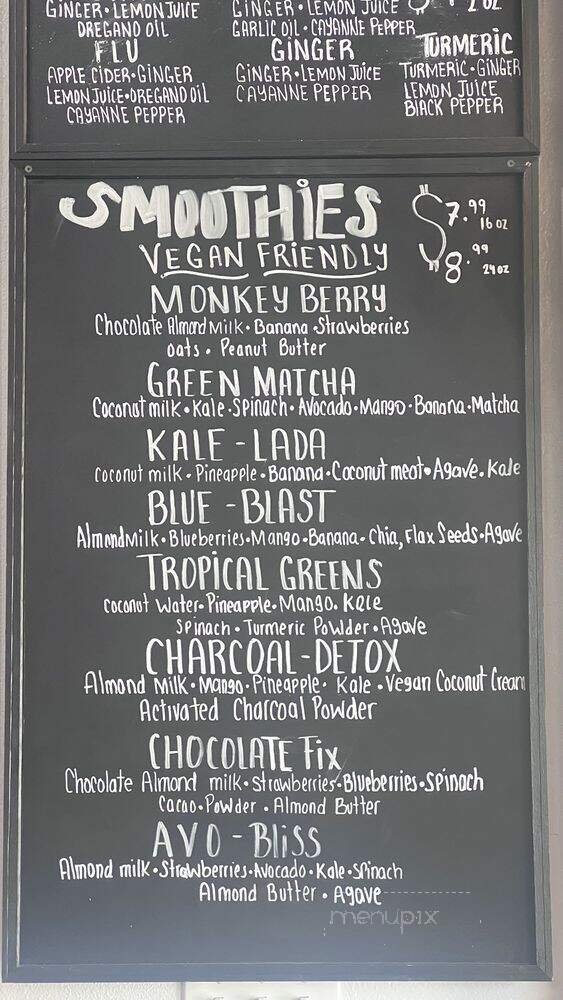 GINGER • LEMON JUICE
OREGANO OIL
GINGER • LEMON JUICE
GARLIC OIL • CAYANNE PEPPER
2 OZ
FLU
APPLE CIDER • GINGER
LEMON JUICE • OREGANO OIL
CAYANNE PEPPER
GINGER
GINGER • LEMON JUICE
CAYANNE PEPPER
TURMERIC
TURMERIC • GINGER
LEMON JUICE
BLACK PEPPER
SMOOTHIES
$7.99 16 oz
8.99 24 oz
VEGAN FRIENDLY
MONKEY BERRY
Chocolate Almond Milk • Banana • Strawberries
oats • Peanut Butter
GREEN MATCHA
Coconut milk • Kale • Spinach • Avocado • Mango • Banana • Matcha
KALE - LADA
coconut milk • Pineapple • Banana • Coconut meat • Agave • Kale
BLUE - BLAST
Almond Milk • Blueberries • Mango • Banana • Chia, Flax Seeds • Agave
TROPICAL GREENS
coconut Water • Pineapple • Mango • Kale
Spinach • Turmeric Powder • Agave
CHARCOAL - DETOX
Almond Milk • Mango • Pineapple • Kale • Vegan Coconut Cream
Activated Charcoal Powder
CHOCOLATE Fix
Chocolate Almond milk • Strawberries • Blueberries • Spinach
Cacao • Powder • Almond Butter
AVO - Bliss
Almond milk • Strawberries • Avocado • Kale • Spinach
Almond Butter • Agave
menupix